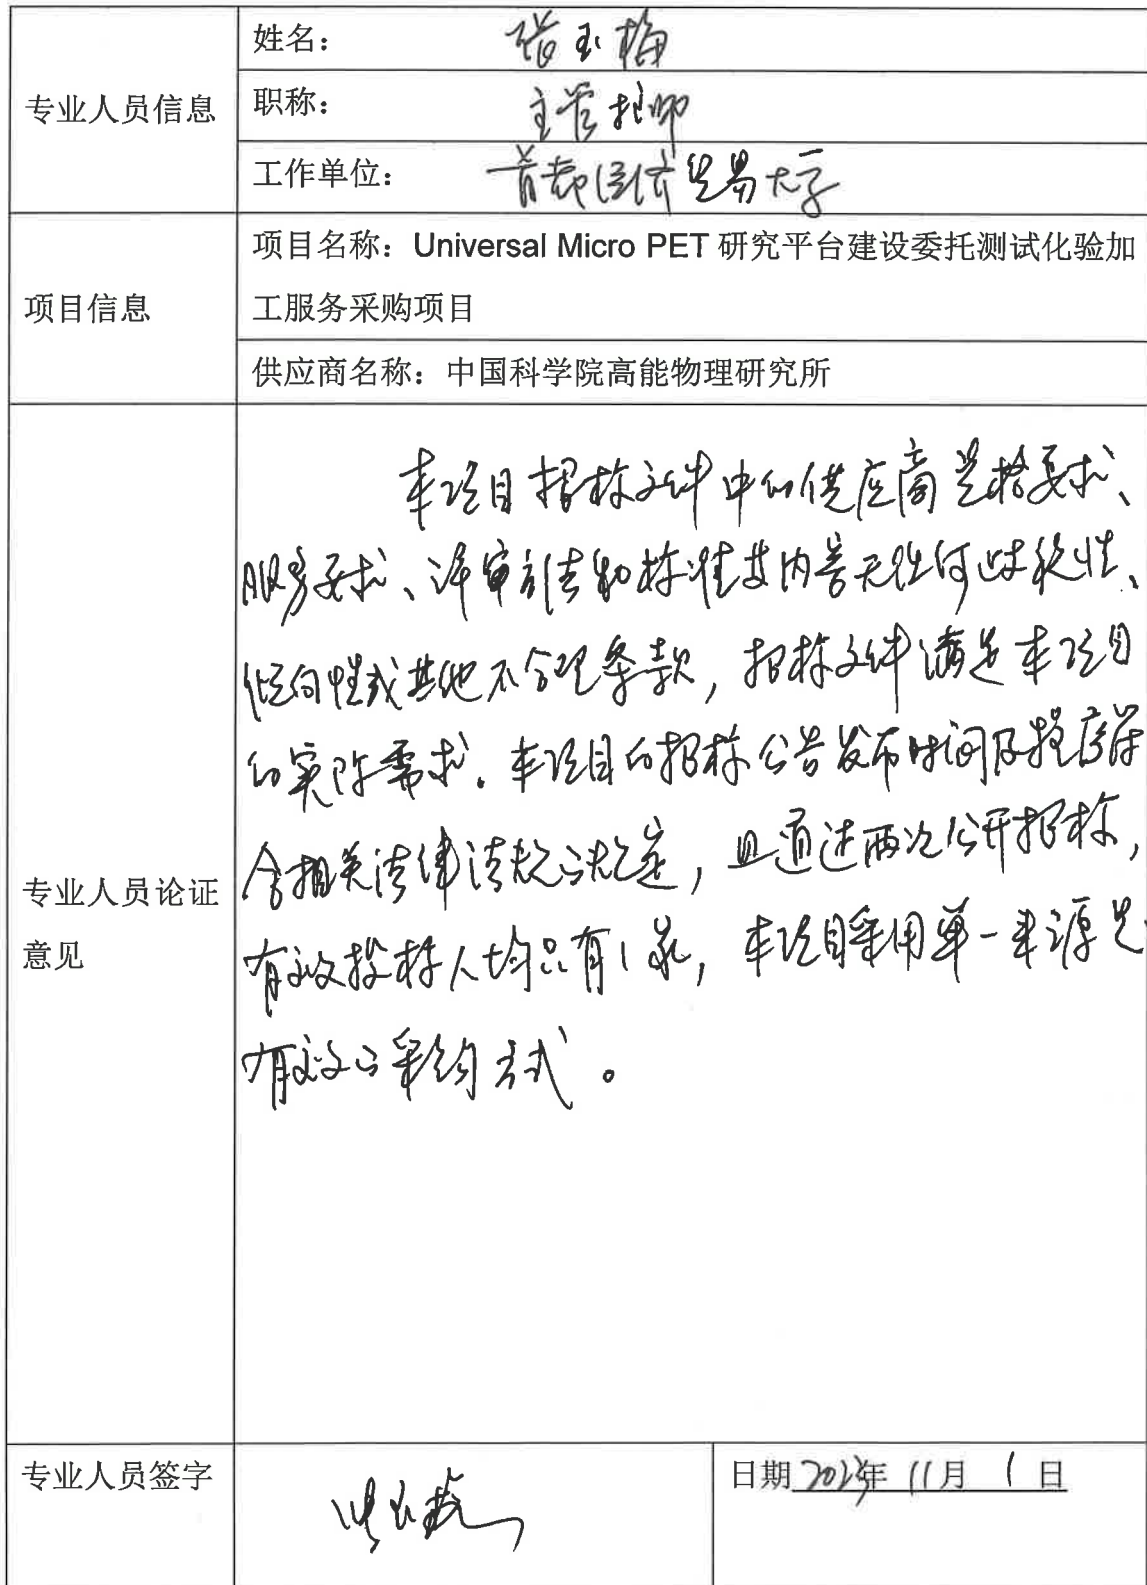 专业人员信息
姓名：张玉梅
职称：主管技师
工作单位：首都经济贸易大学
项目信息
项目名称：Universal Micro PET 研究平台建设委托测试化验加
工服务采购项目
供应商名称：中国科学院高能物理研究所
专业人员论证
意见
本项目招标文件中的供应商资格要求、
服务要求、评审方法和标准其内容无任何歧视性、
倾向性或其他不合理条款，招标文件满足本项目
的实际需求。本项目的招标公告发布时间及程序符
合相关法律法规的规定，且通过两次公开招标，
有效投标人均只有1家，本项目采用单一来源是
有效的采购方式。
专业人员签字
日期 2023年 11月 1 日